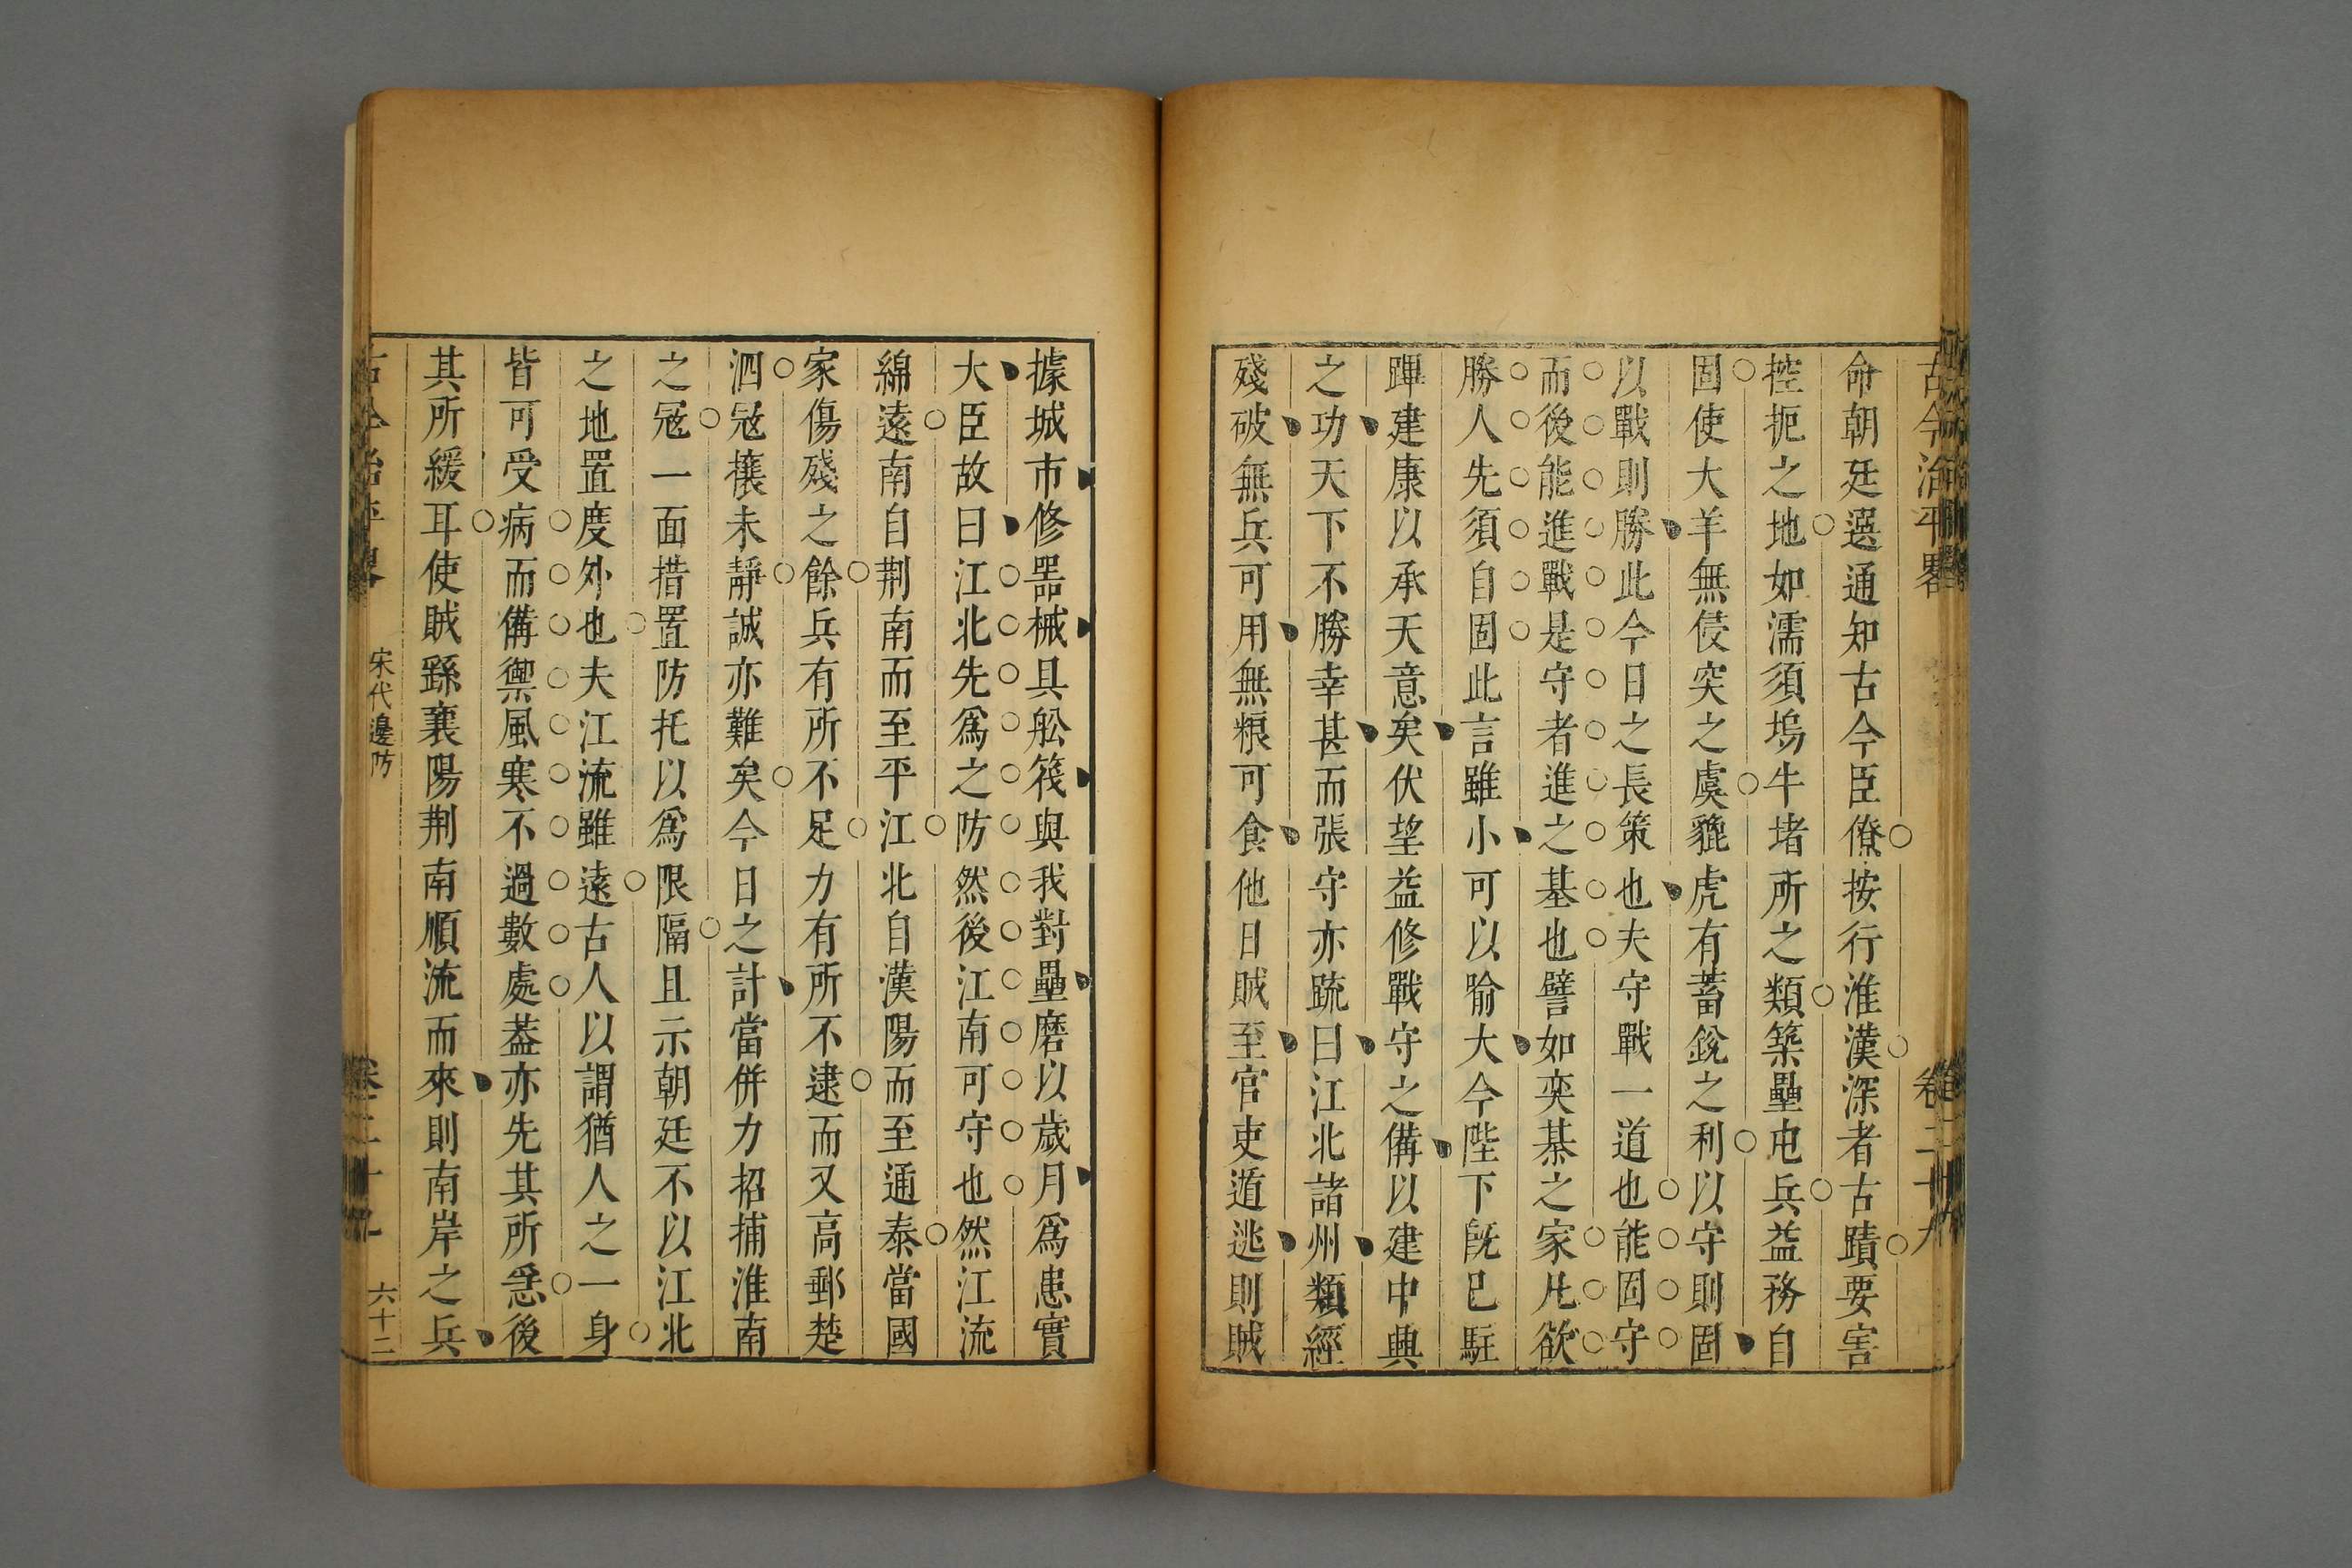 古今治平畧 卷二十九
命朝廷選通知古今臣僚按行淮漢深者古蹟要害
控扼之地如濡須塢牛堵所之類築壘屯兵益務自
固使大羊無侵突之虞貔虎有蓄銳之利以守則固
以戰則勝此今日之長策也夫守戰一道也能固守
而後能進戰是守者進之基也譬如奕棊之家凡欲
勝人先須自固此言雖小可以喻大今陛下旣巳駐
蹕建康以承天意矣伏望益修戰守之備以建中興
之功天下不勝幸甚而張守亦䟽曰江北諸州類經
殘破無兵可用無粮可食他日賊至官吏遁逃則賊
據城市修噐械具舩筏與我對壘磨以歲月爲患實
大臣故曰江北先爲之防然後江南可守也然江流
綿遠南自荆南而至平江北自漢陽而至通泰當國
家傷殘之餘兵有所不足力有所不逮而又高郵楚
泗冦攘未靜誠亦難矣今日之計當併力招捕淮南
之冦一面措置防托以爲限隔且示朝廷不以江北
之地置度外也夫江流雖遠古人以謂猶人之一身
皆可受病而備禦風寒不過數處葢亦先其所急後
其所緩耳使賊繇襄陽荆南順流而來則南岸之兵
古今治平畧 宋代邊防 卷二十九 六十二